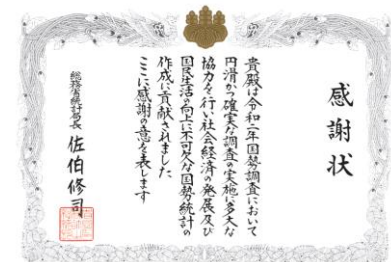 感謝状
貴殿は令和二年国勢調査において
円滑かつ確実な調査の実施に多大な
協力を行い社会経済の発展及び
国民生活の向上に不可欠な国勢統計の
作成に貢献されました
ここに感謝の意を表します
総務省統計局長 佐伯修司